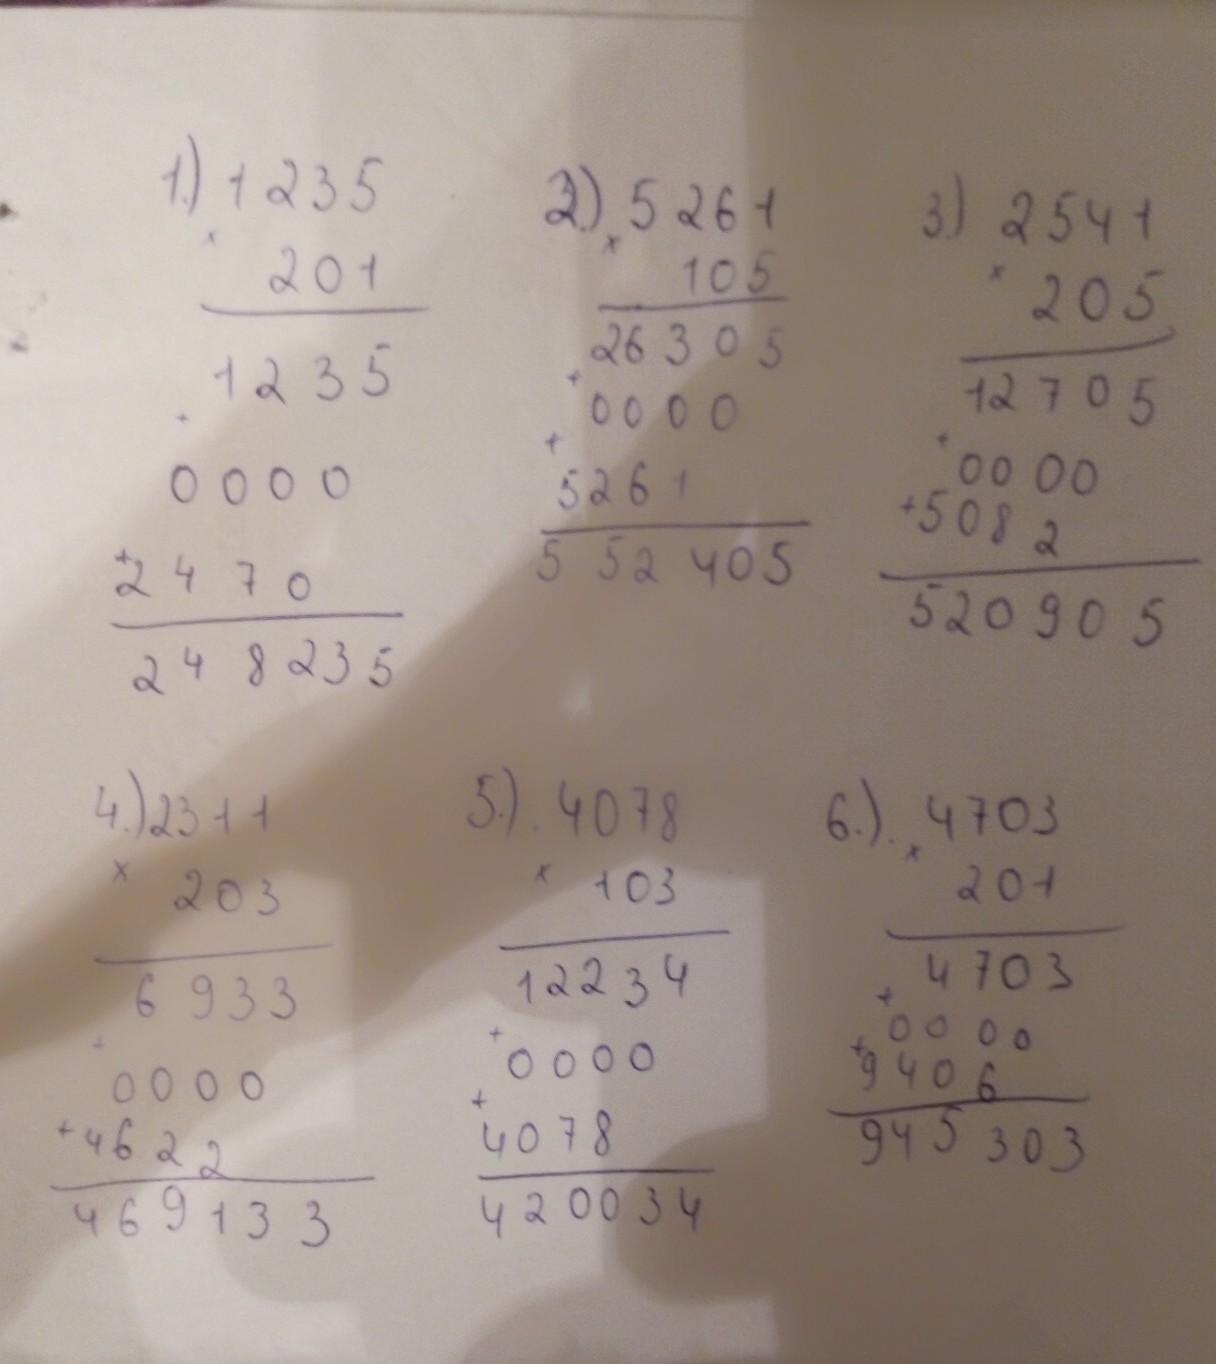 1.) 1235
× 201
1235
+
0000
+
2470
248235
2.) 5261
×
105
26305
+
0000
+
5261
552405
3.) 2541
× 205
12705
+
0000
+5082
520905
4.) 2311
× 203
6933
+
0000
+4622
469133
5.) . 4078
× 103
12234
+
0000
+
4078
420034
6.) . 4703
×
201
4703
+
0000
+
9406
945303